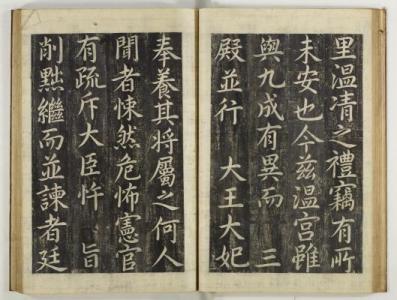 里温凊之禮竊有所
未安也今茲温宮雖
與九成有異而　三
殿並行　大王大妃
奉養其将屬之何人
聞者悚然危怖憲官
有疏斥大臣忤　旨
削黜繼而並諫者廷